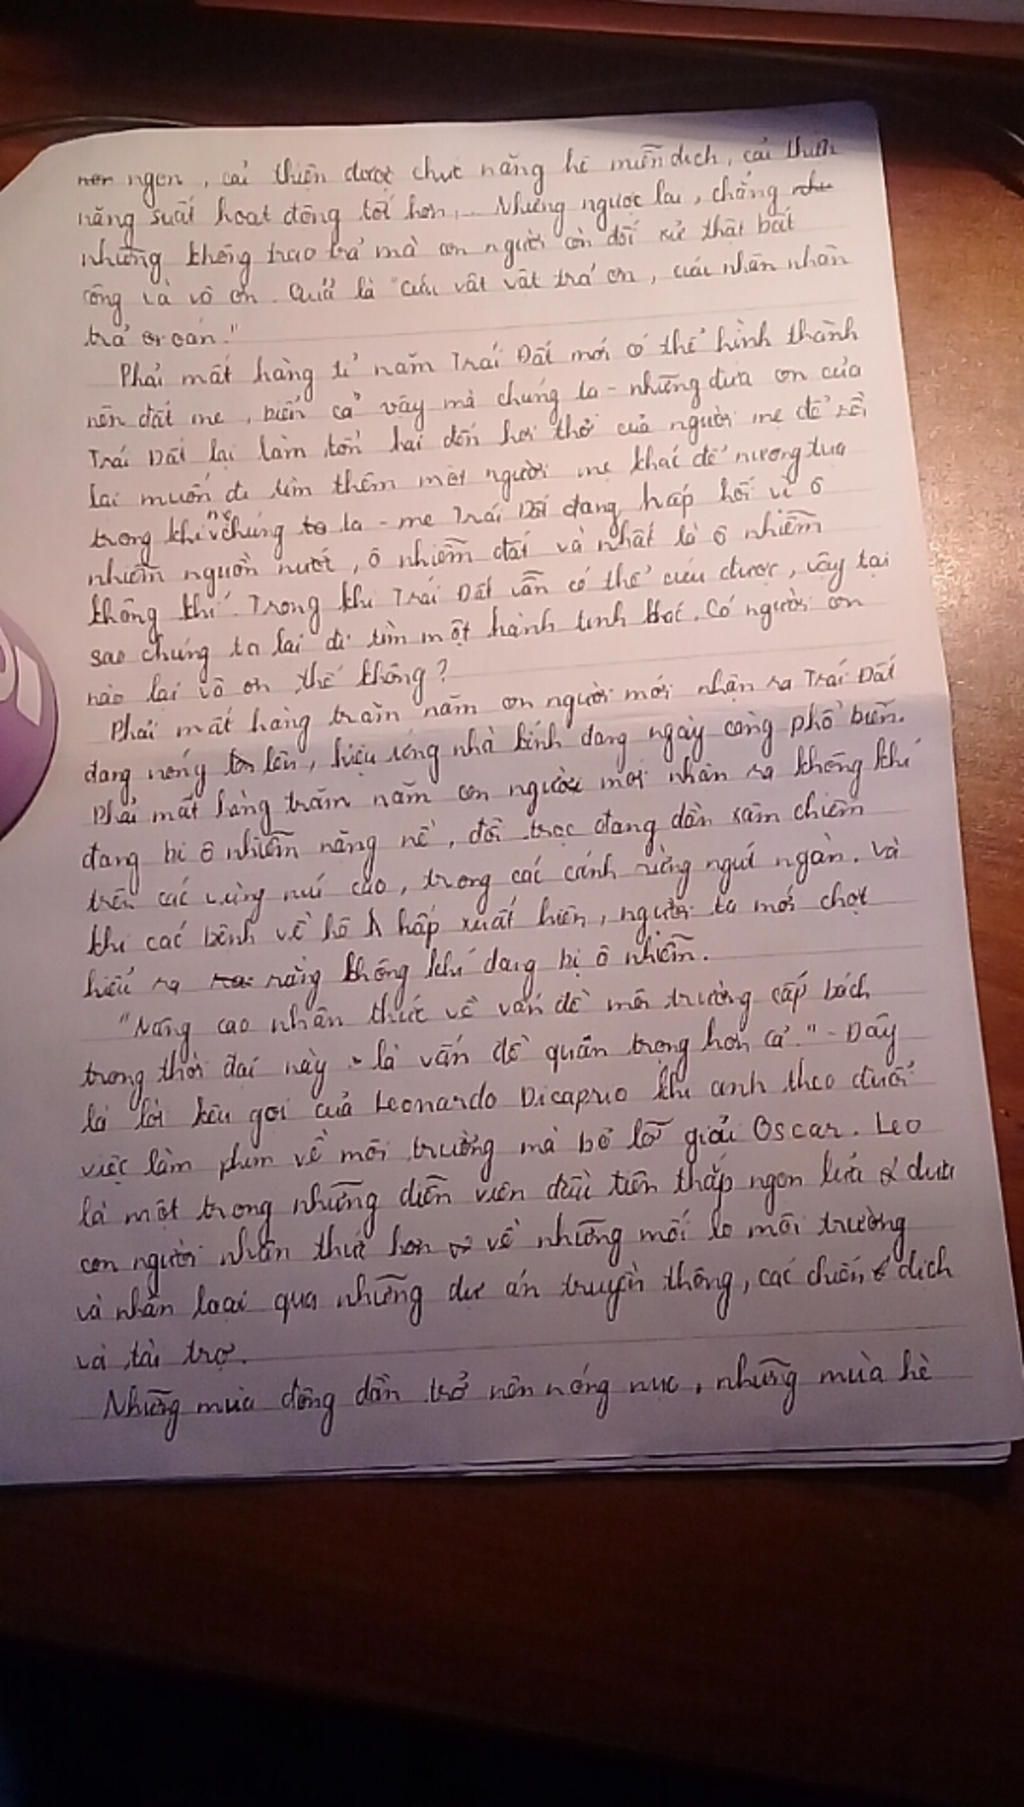 ngon, cải thiện được chức năng hê miễn dịch, cải thiện
năng suất hoạt động tốt hơn,... Nhưng ngược lại, chẳng
những không trao trả mà con người còn đối xử thật bất
công và vô ơn. Quả là "cứu vật vật trả ơn, cứu nhân nhân
trả oán."
Phải mất hàng tỉ năm Trái Đất mới có thể hình thành
nên đất mẹ, biển cả vậy mà chúng ta - những đứa con của
Trái Đất lại làm tổn hại đến hơi thở của người mẹ để rồi
lại muốn đi tìm thêm một người mẹ khác để nương tựa
trong khi mẹ chúng ta - mẹ Trái Đất đang hấp hối vì ô
nhiễm nguồn nước, ô nhiễm đất và nhất là ô nhiễm
không khí. Trong khi Trái Đất vẫn có thể cứu được, vậy tại
sao chúng ta lại đi tìm một hành tinh khác. Có người con
nào lại vô ơn thế không?
Phải mất hàng trăm năm con người mới nhận ra Trái Đất
đang nóng lên, hiệu ứng nhà kính đang ngày càng phổ biến.
Phải mất hàng trăm năm con người mới nhận ra không khí
đang bị ô nhiễm nặng nề, đồi trọc đang dần xâm chiếm
trên các vùng núi cao, trong các cánh rừng ngút ngàn. Và
khi các bệnh về hô hấp xuất hiện, người ta mới chợt
hiểu ra rằng không khí đang bị ô nhiễm.
"Nâng cao nhận thức về vấn đề môi trường cấp bách
trong thời đại này - là vấn đề quan trọng hơn cả." - Đây
là lời kêu gọi của Leonardo Dicaprio khi anh theo đuổi
việc làm phim về môi trường mà bỏ lỡ giải Oscar. Leo
là một trong những diễn viên đầu tiên thắp ngọn lửa đưa
con người nhận thức hơn về những mối lo môi trường
và nhân loại qua những dự án truyền thông, các chiến dịch
và tài trợ.
Những mùa đông dần trở nên nóng nực, những mùa hè